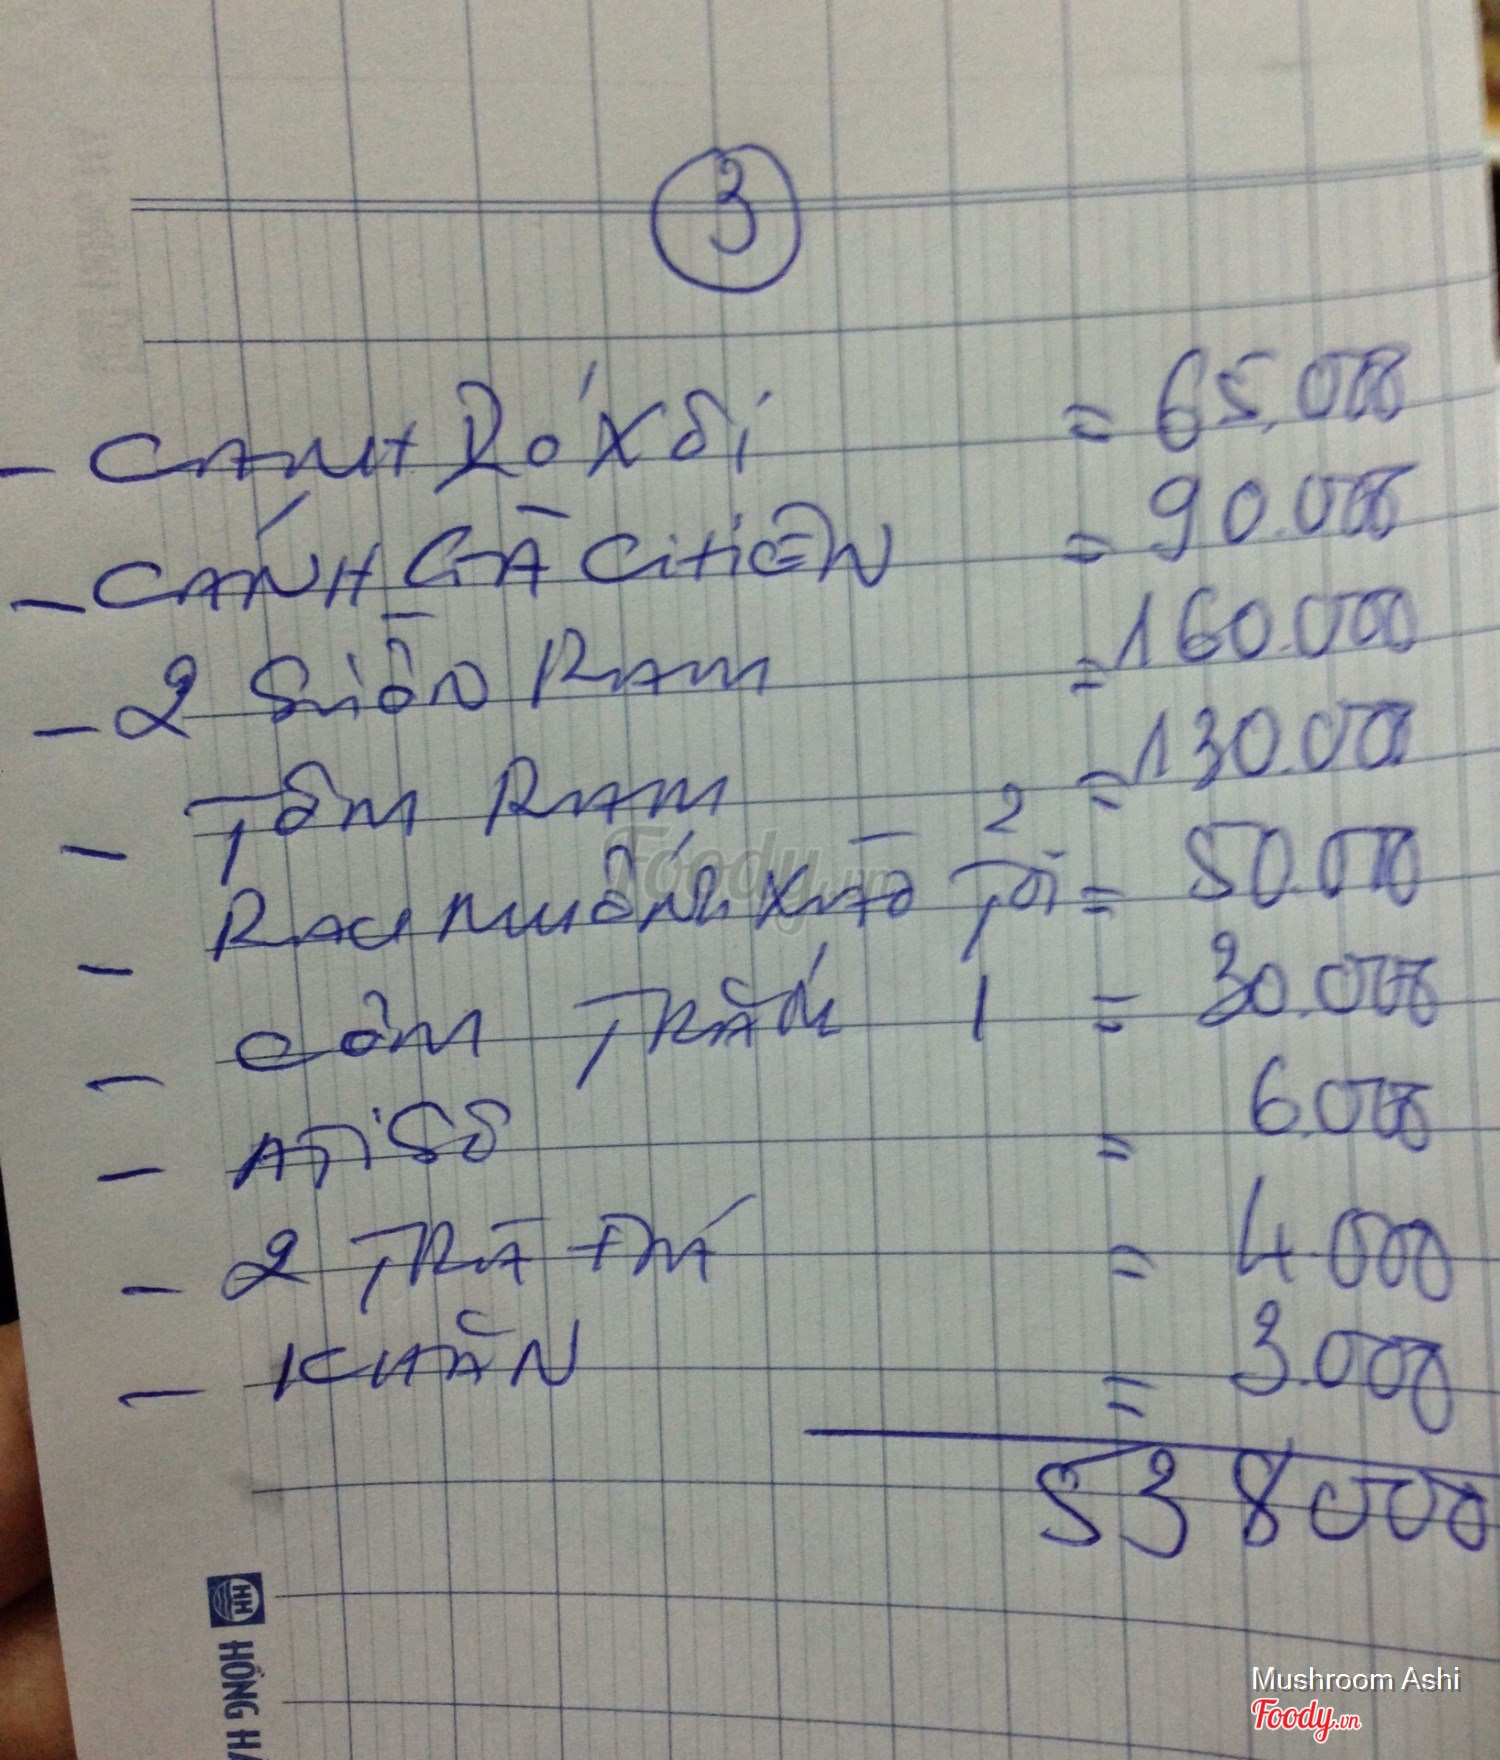 3
- CANH RÓ XÔI = 65.000
- CÁNH GÀ CHIÊN = 90.000
- 2 SƯỜN RAM = 160.000
- TÔM RAM = 130.000
- RAU MUỐNG XÀO TỎI 2 = 50.000
- CƠM TRẮNG 1 = 30.000
- ATISÔ = 6.000
- 2 TRÀ ĐÁ = 4.000
- KHĂN = 3.000
538000
Foody.vn
HH
HỒNG HÀ
Mushroom Ashi
Foody.vn